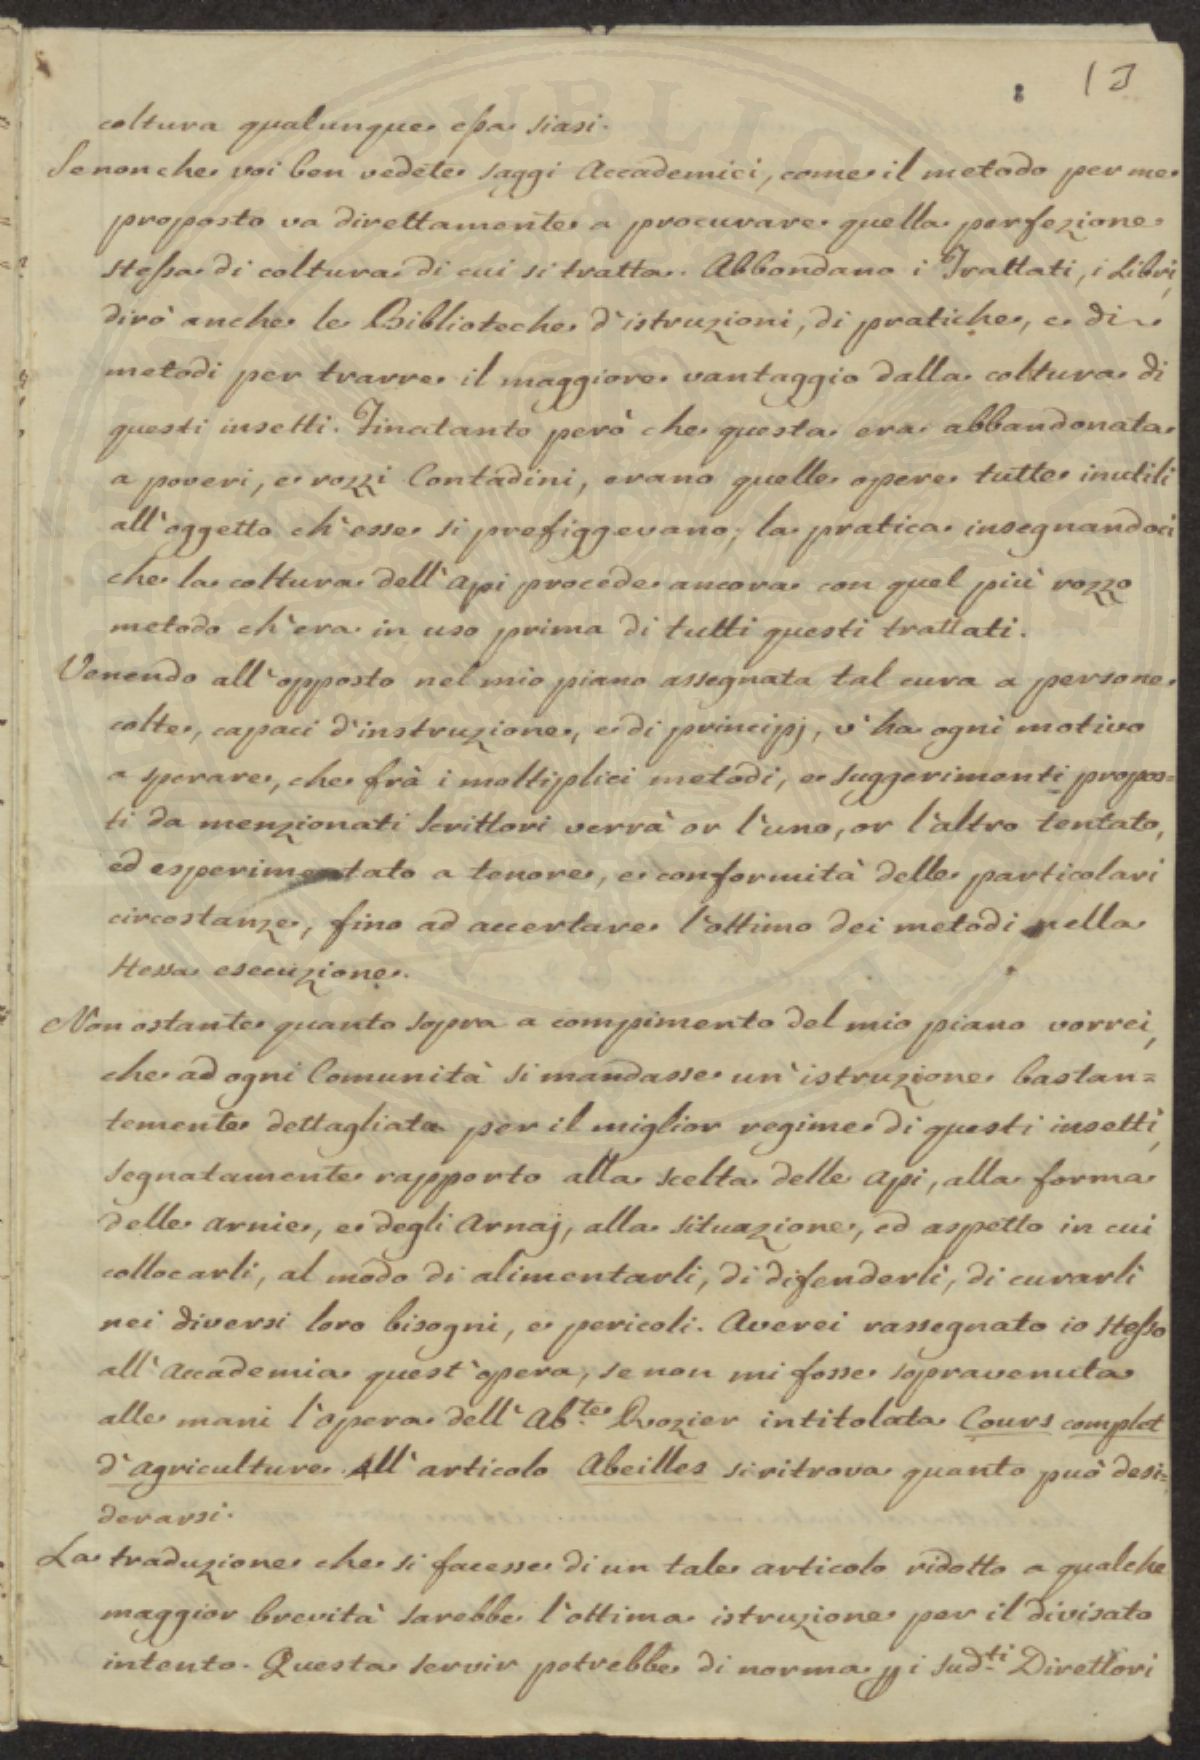 13
coltura qualunque essa siasi.
Senonche voi ben vedete saggi Accademici, come il metodo per me
proposto va direttamente a procurare quella perfezione
stessa di coltura di cui si tratta. Abbondano i Trattati, i Libri,
dirò anche le Biblioteche d'istruzioni, di pratiche, e di
metodi per trarre il maggiore vantaggio dalla coltura di
questi insetti. Finatanto però che questa era abbandonata
a poveri, e rozzi Contadini, erano quelle opere tutte inutili
all'oggetto ch'esse si prefiggevano; la pratica insegnandoci
che la coltura dell'Api procede ancora con quel più rozzo
metodo ch'era in uso prima di tutti questi trattati.
Venendo all'opposto nel mio piano assegnata tal cura a persone
colte, capaci d'instruzione, e di principj, v'ha ogni motivo
a sperare, che frà i moltiplici metodi, e suggerimenti propos=
ti da menzionati Scrittori verrà or l'uno, or l'altro tentato,
ed esperimentato a tenore, e conformità delle particolari
circostanze, fino ad accertare l'ottimo dei metodi nella
stessa esecuzione.
Non ostante quanto sopra a compimento del mio piano vorrei,
che ad ogni Comunità si mandasse un'istruzione bastan=
temente dettagliata per il miglior regime di questi insetti,
segnatamente rapporto alla scelta delle Api, alla forma
delle arnie, e degli Arnaj, alla situazione, ed aspetto in cui
collocarli, al modo di alimentarli, di difenderli, di curarli
nei diversi loro bisogni, e pericoli. Averei rassegnato io stesso
all'Accademia quest'opera, se non mi fosse sopravenuta
alle mani l'opera dell'Ab.te Rozier intitolata Cours complet
d'agriculture. All'articolo Abeilles si ritrova quanto può desi=
derarsi.
La traduzione che si facesse di un tale articolo ridotto a qualche
maggior brevità sarebbe l'ottima istruzione per il divisato
intento. Questa servir potrebbe di norma p i sud.ti Direttori
PUBLIC